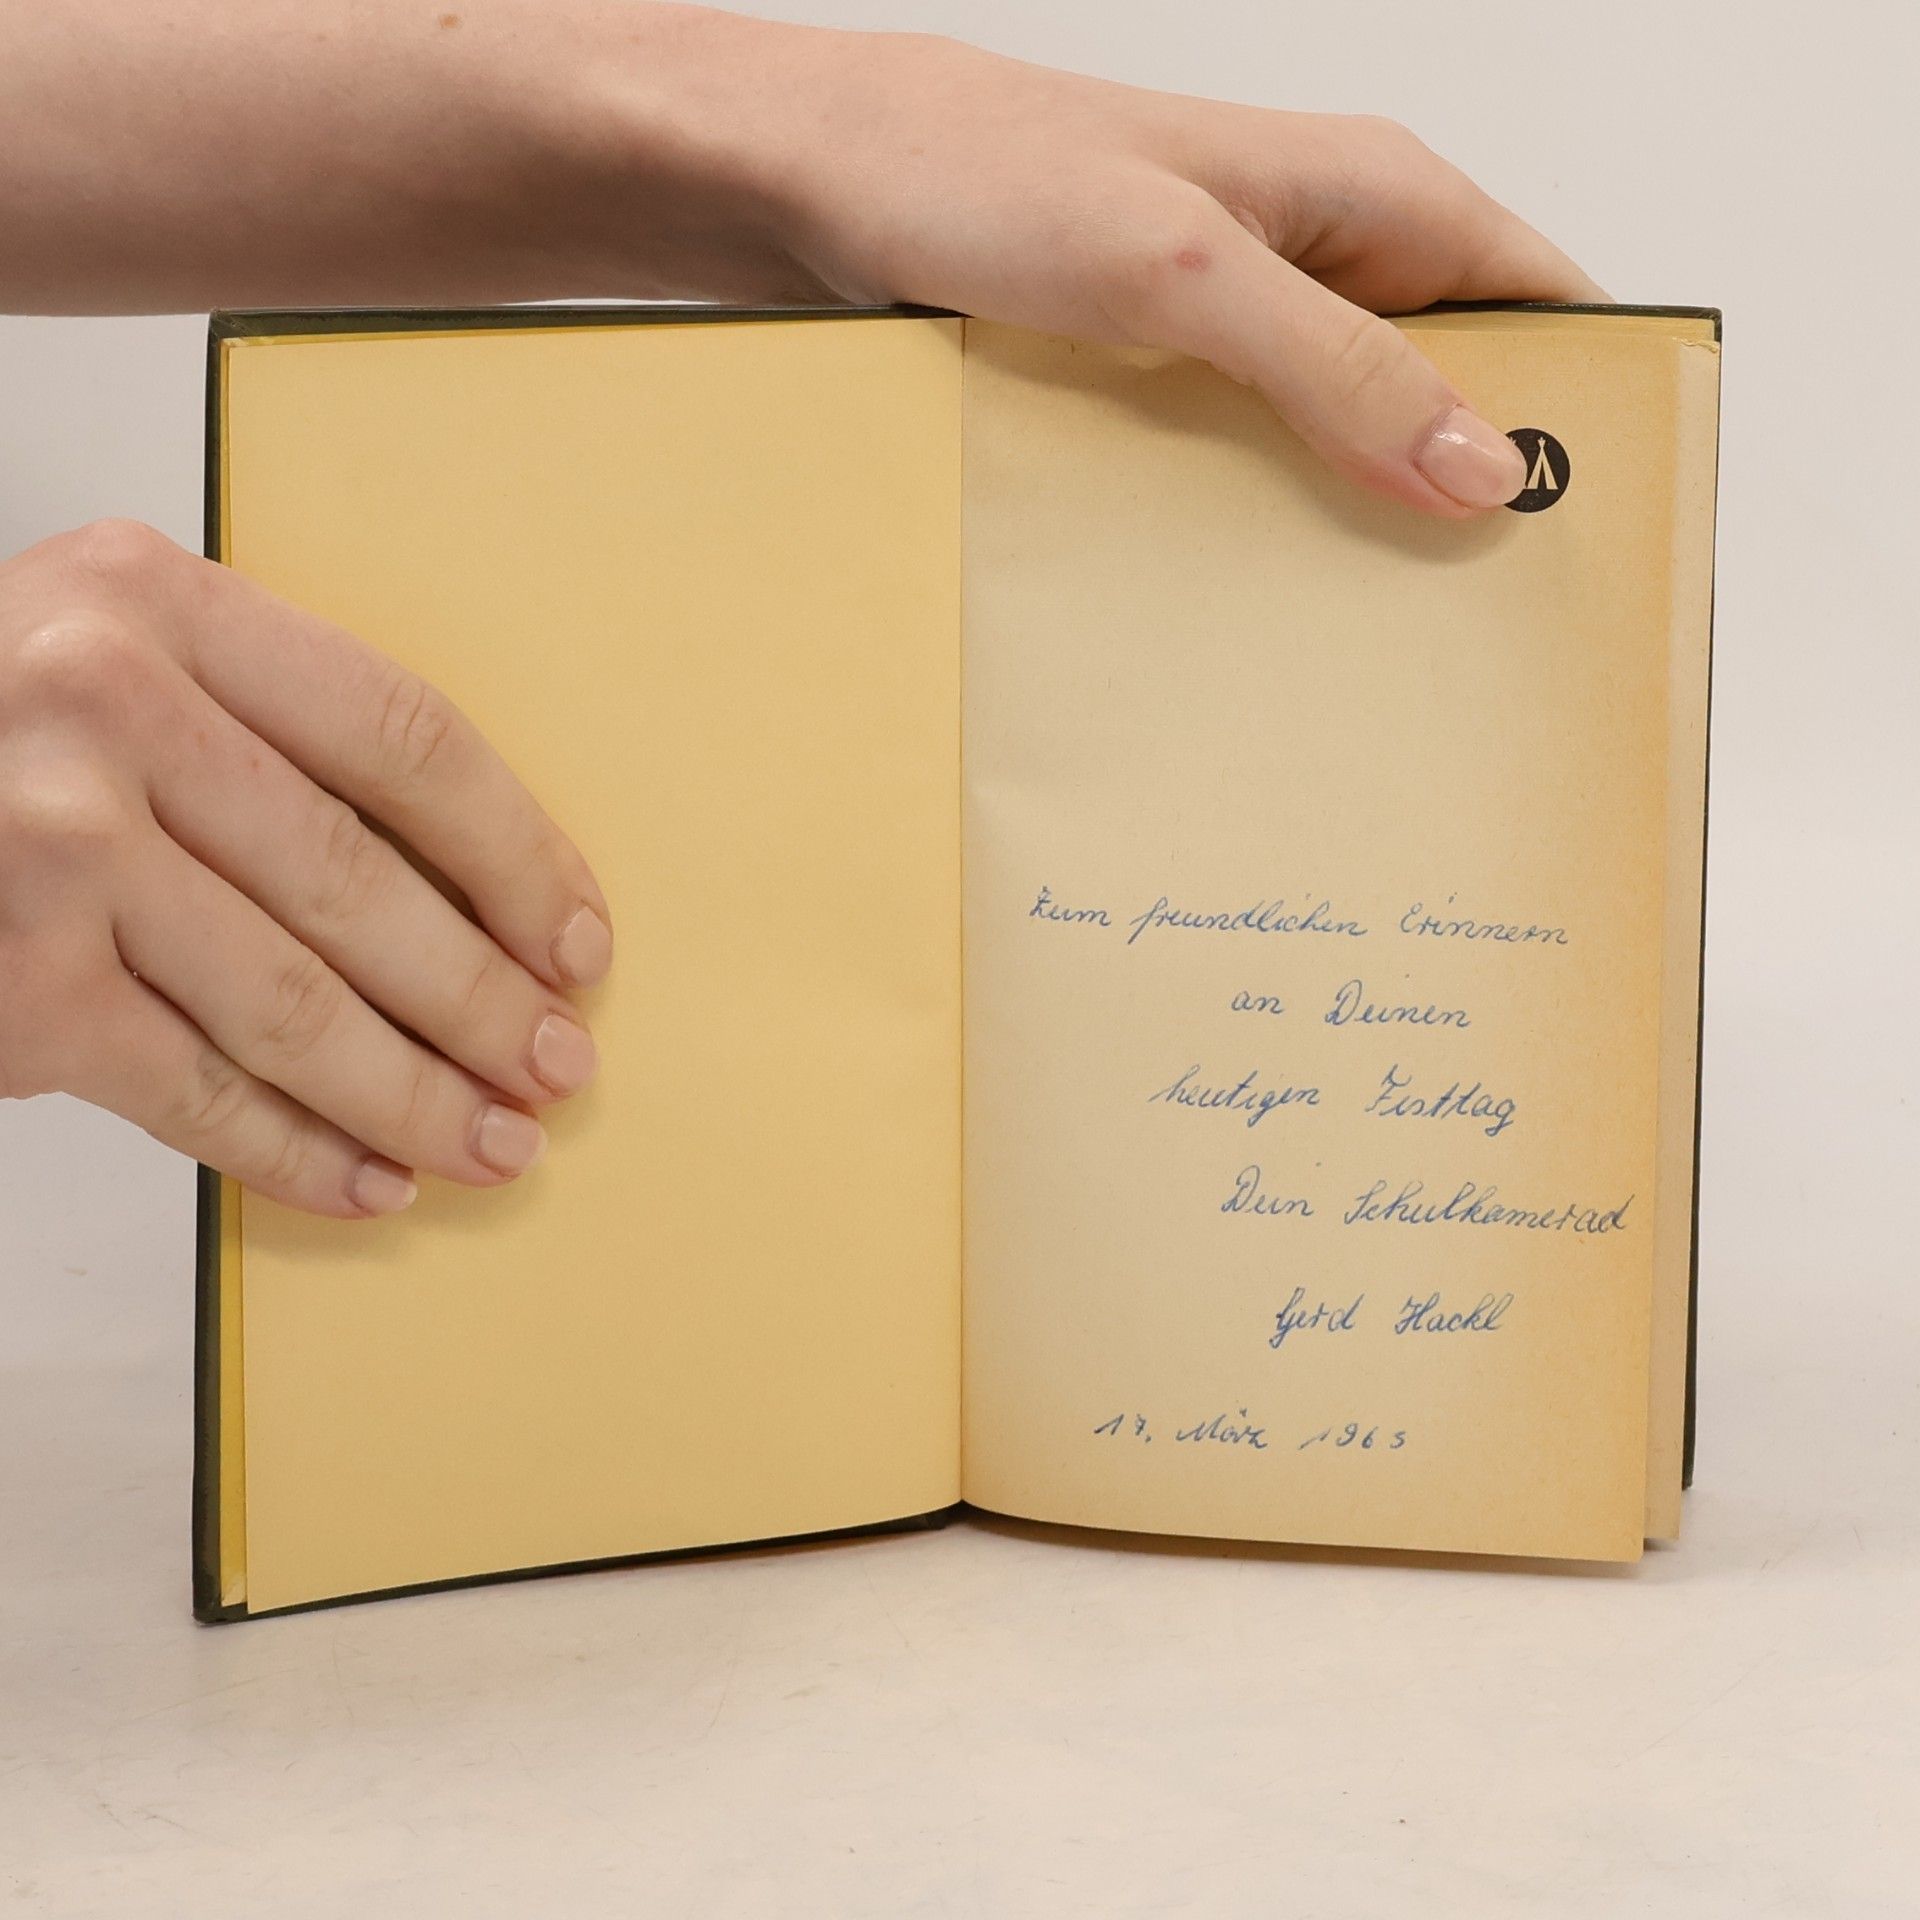 Zum freundlichen Erinnern
an Deinen
heutigen Festtag
Dein Schulkamerad
Gerd Hackl
17. März 1965